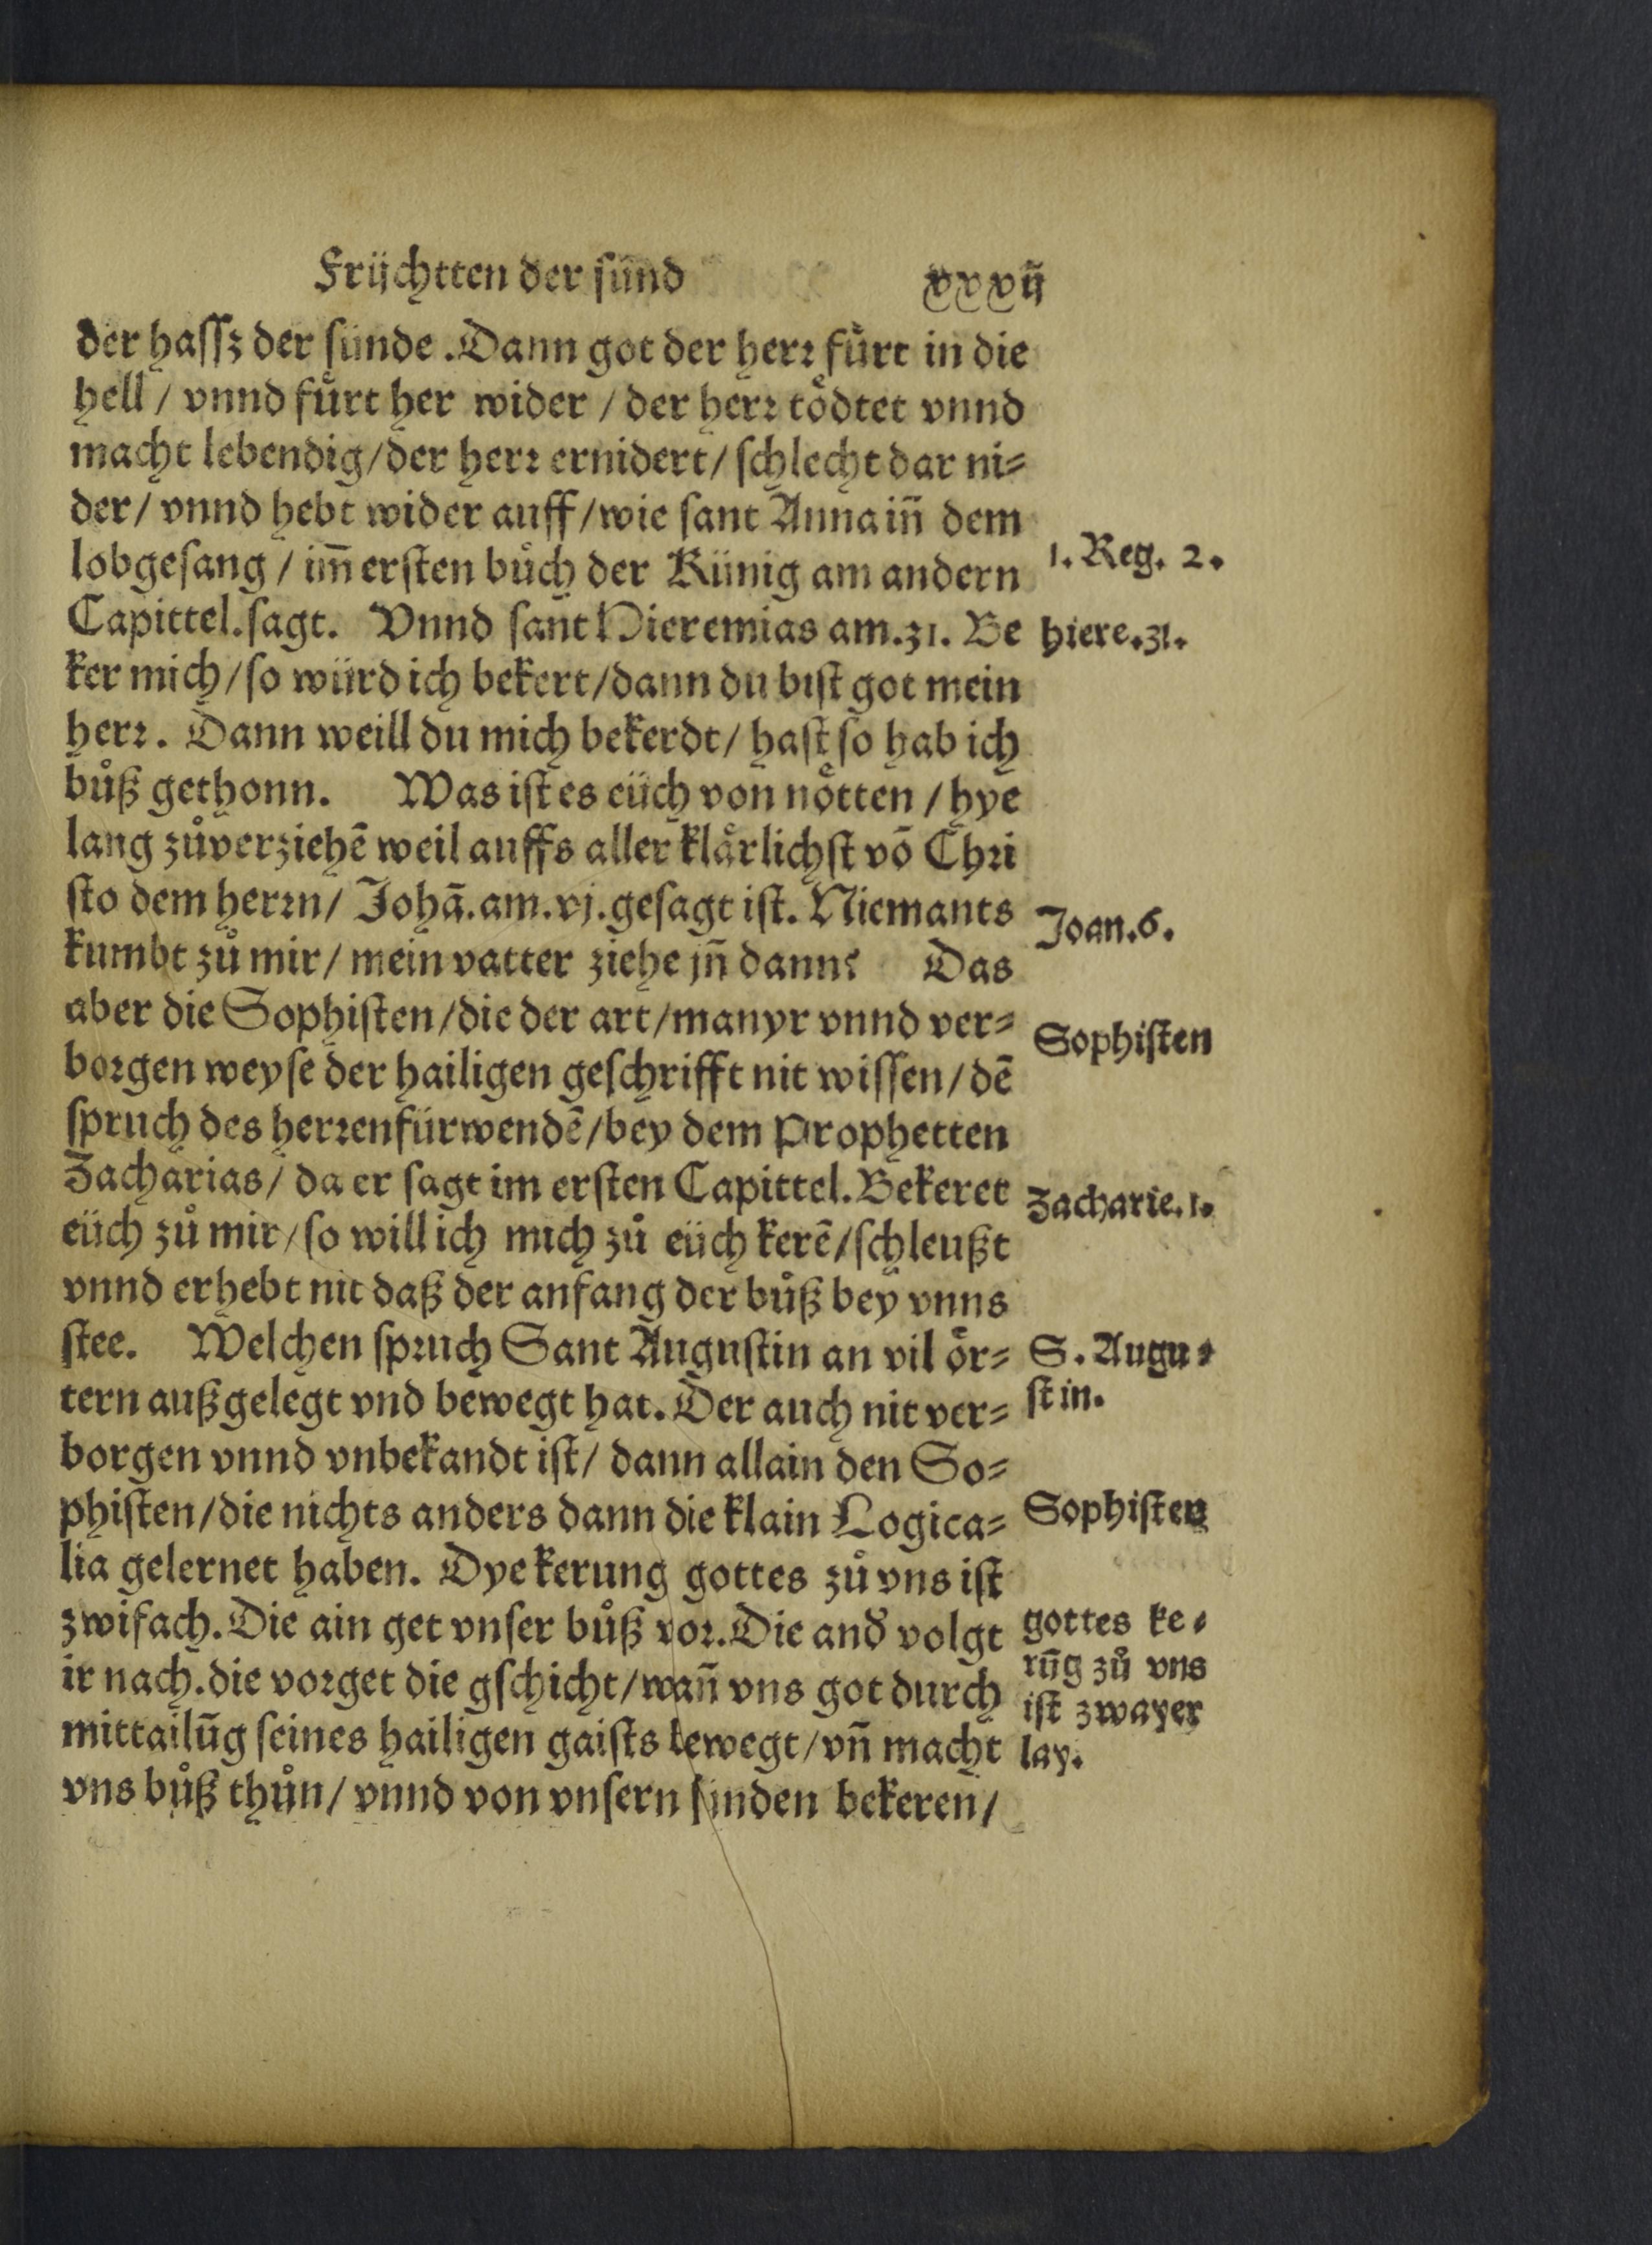 Früchtten der sünd xxxvij
der hassz der sünde. Dann got der herr fuͤrt in die
hell / vnnd fuͤrt her wider / der herr toͤdtet vnnd
macht lebendig / der herr ernidert / schlecht dar ni⸗
der / vnnd hebt wider auff / wie sant Anna iñ dem
lobgesang / im̃ ersten buͦch der Künig am andern
1. Reg. 2.
Capittel. sagt. Vnnd sant Hieremias am. 31. Be
hiere. 31.
ker mich / so würd ich bekert / dann du bist got mein
herr. Dann weill du mich bekerdt / hast so hab ich
buͦß gethonn. Was ist es eüch von noͤtten / hye
lang zuͦverziehẽ weil auffs aller klaͤrlichst võ Chri
sto dem herrn / Johã. am. vj. gesagt ist. Niemants
Joan. 6.
kumbt zuͦ mir / mein vatter ziehe jñ dann? Das
aber die Sophisten / die der art / manyr vnnd ver⸗
Sophisten
borgen weyse der hailigen geschrifft nit wissen / dẽ
spruch des herren fürwendẽ / bey dem Prophetten
Zacharias / da er sagt im ersten Capittel. Bekeret
Zacharie. 1.
eüch zuͦ mir / so will ich mich zuͦ eüch kerẽ / schleußt
vnnd erhebt nit daß der anfang der buͦß bey vnns
stee. Welchen spruch Sant Augustin an vil oͤr⸗
S. Augu⸗
tern außgelegt vnd bewegt hat. Der auch nit ver⸗
stin.
borgen vnnd vnbekandt ist / dann allain den So⸗
phisten / die nichts anders dann die klain Logica⸗
Sophisten
lia gelernet haben. Dye kerung gottes zuͦ vns ist
zwifach. Die ain get vnser buͦß vor. Die and̃ volgt
gottes ke⸗
ir nach. die vorget die gschicht / wañ vns got durch
rũg zuͦ vns
ist zwayer
mittailũg seines hailigen gaists bewegt / vñ macht
lay.
vns buͦß thuͦn / vnnd von vnsern sünden bekeren /